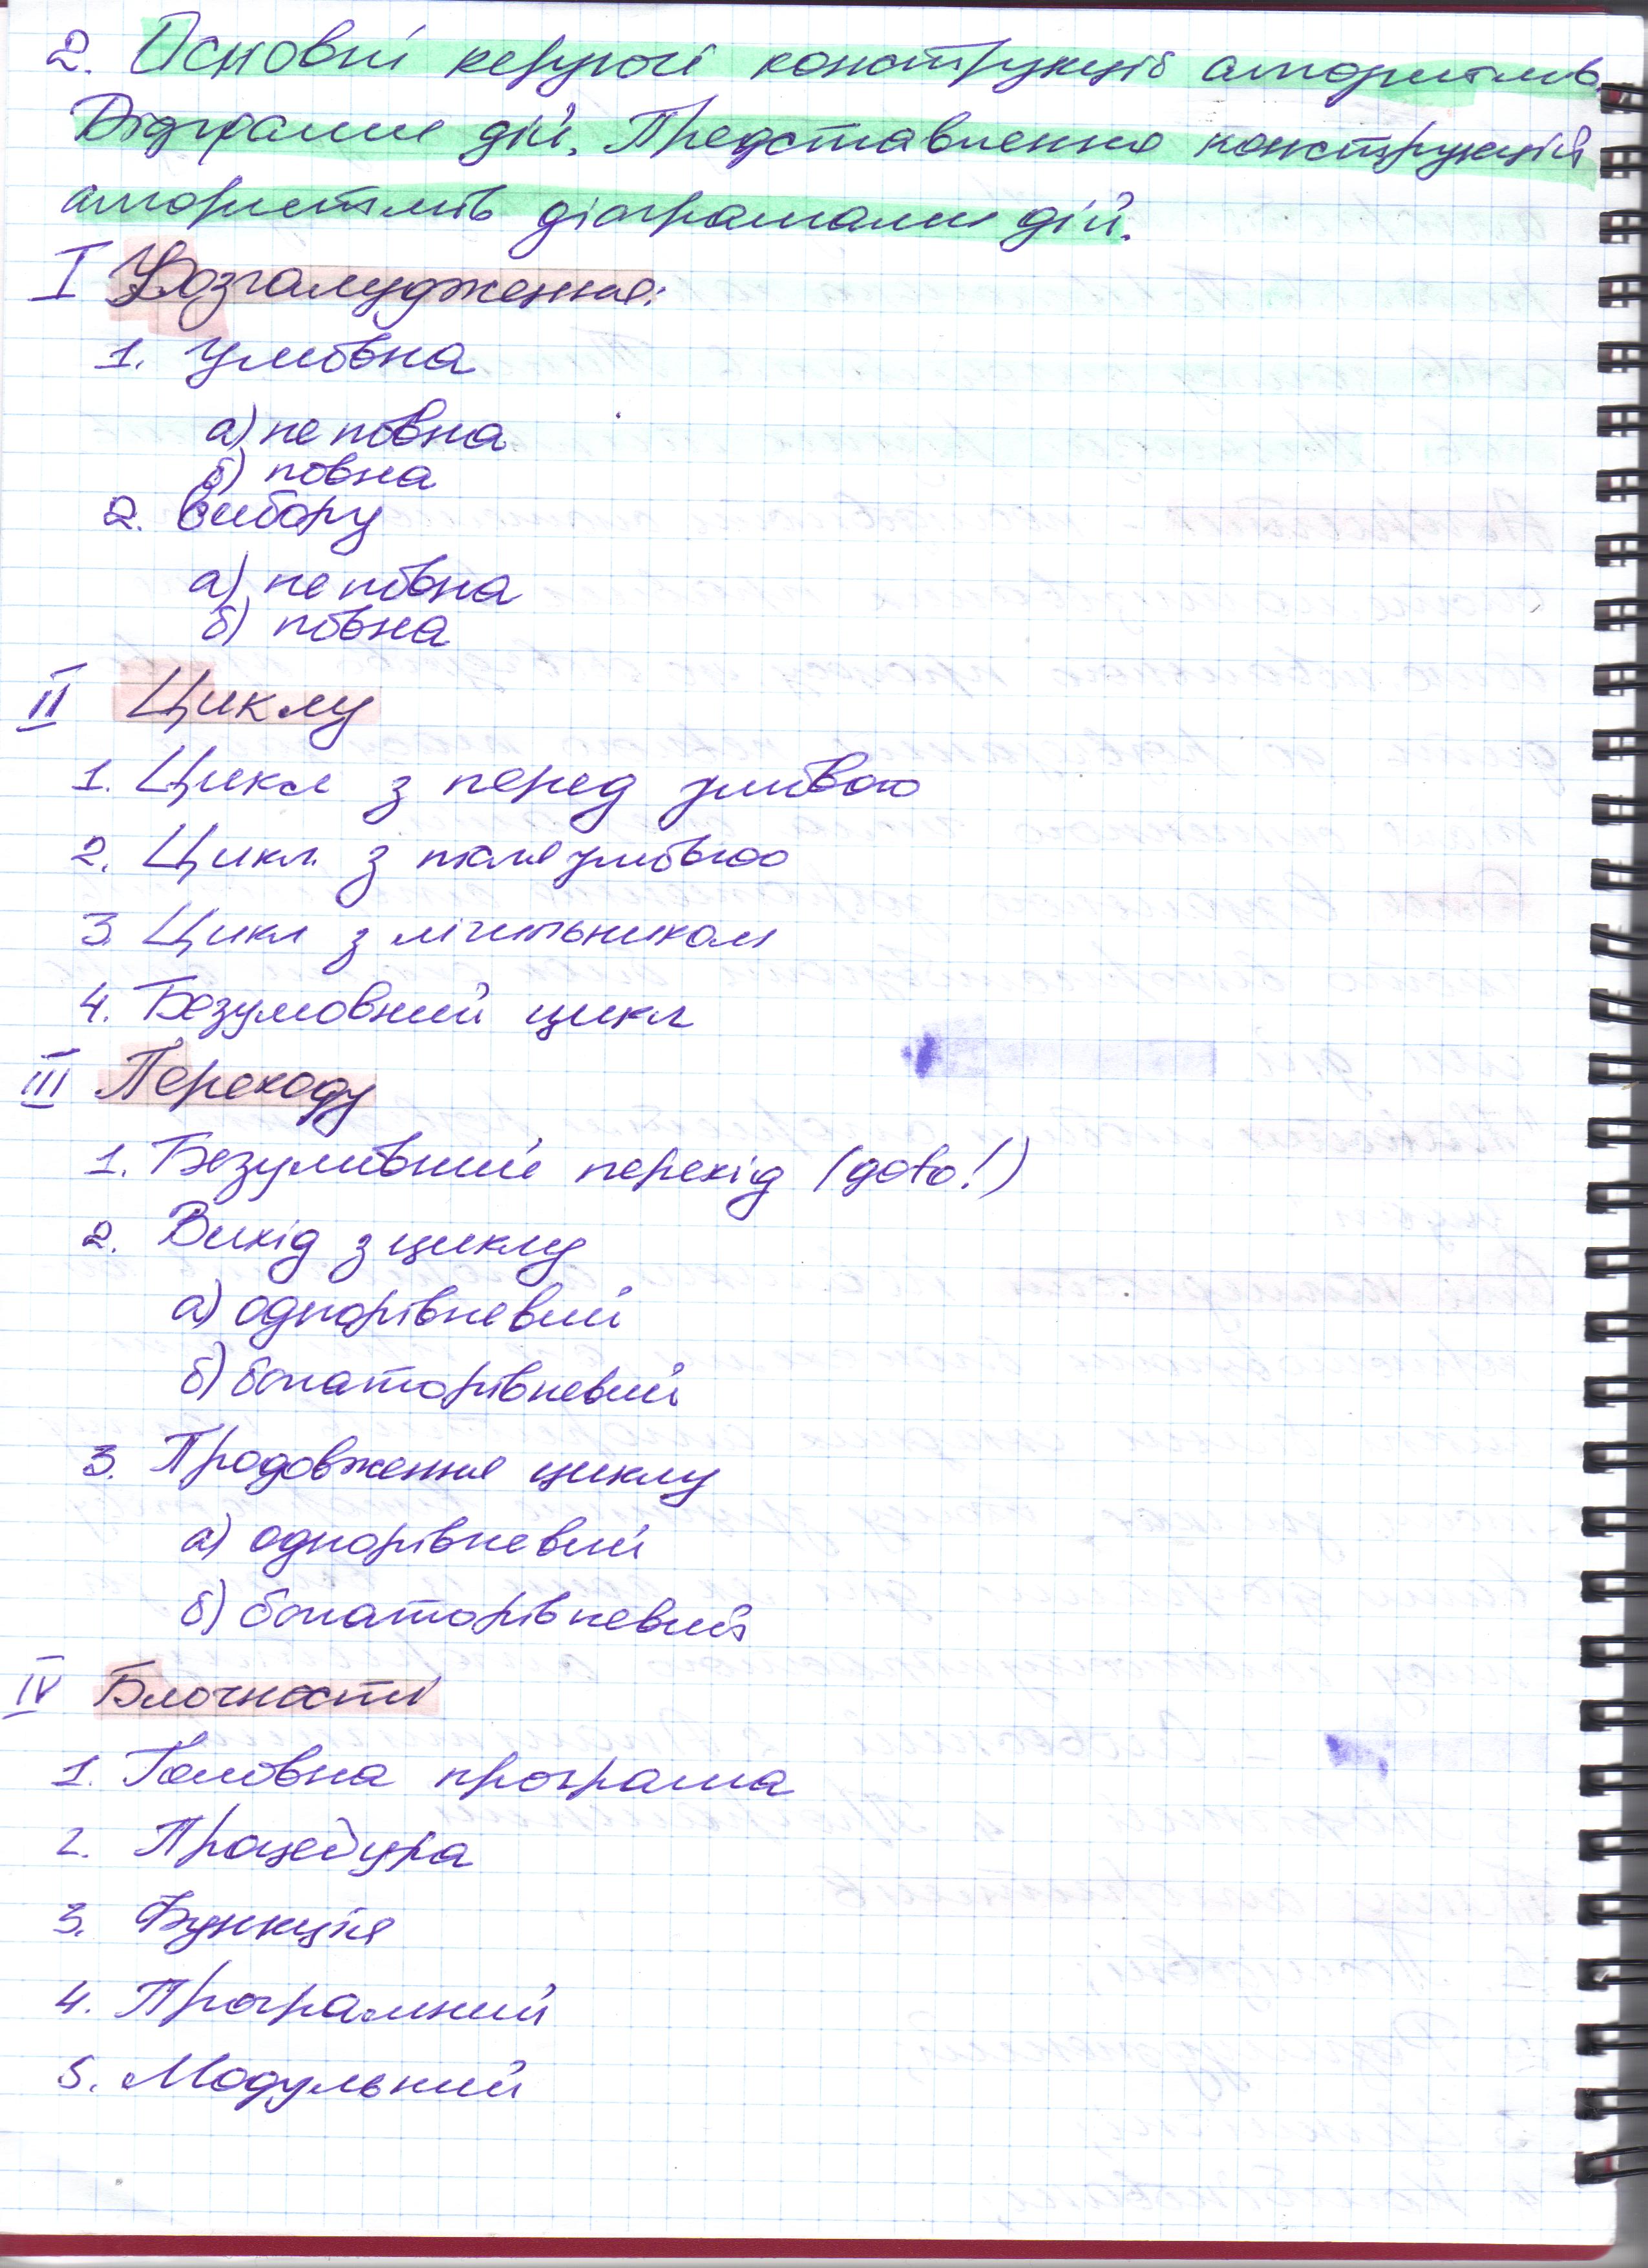 2. Основні керуючі конструкції алгоритмів.
Діаграми дій. Представлення конструкцій
алгоритмів діаграмами дій.
I Розгалудження:
1. Умовна
а) не повна
б) повна
2. Вибору
а) не повна
б) повна
II Циклу
1. Цикл з перед умовою
2. Цикл з після умовою
3. Цикл з лічильником
4. Безумовний цикл
III Переходу
1. Безумовний перехід (goto!)
2. Вихід з циклу
а) однорівневий
б) багаторівневий
3. Продовження циклу
а) однорівневий
б) багаторівневий
IV Блочності
1. Головна програма
2. Процедура
3. Функція
4. Програмний
5. Модульний